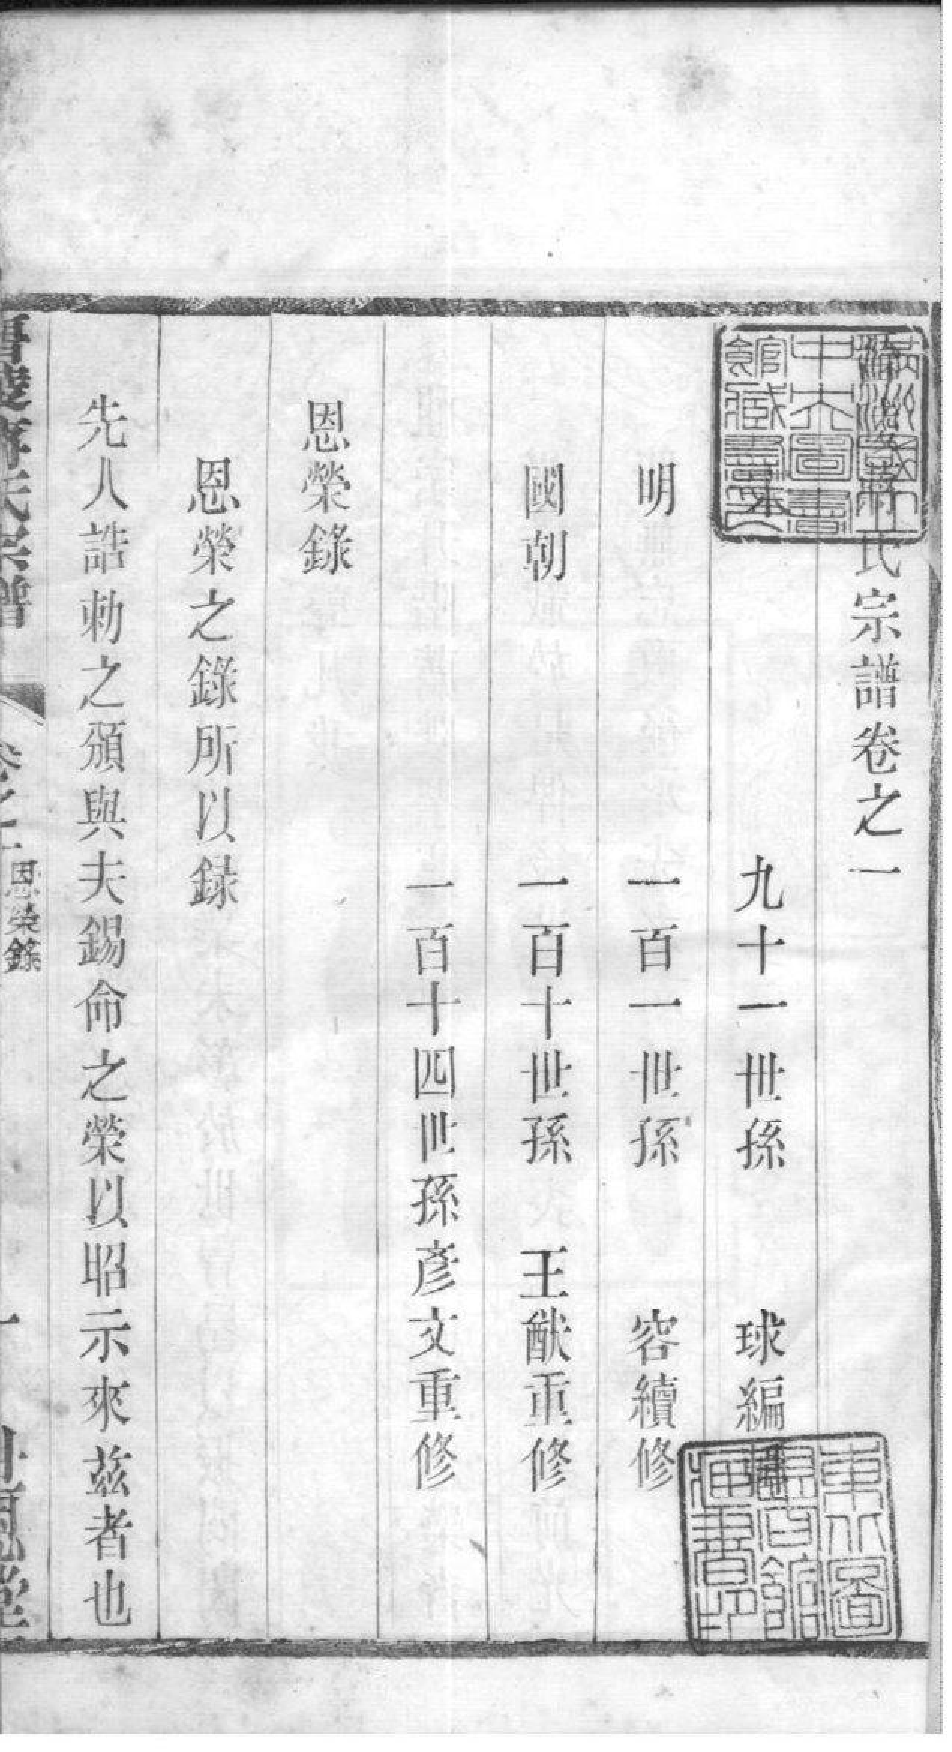 氏宗譜卷之一
九十一世孫 球編
明 一百一世孫 容續修
國朝 一百十世孫 王猷重修
一百十四世孫彥文重修
恩榮錄
恩榮之錄所以録
先人誥勅之頒與夫錫命之榮以昭示來兹者也
氏宗譜
卷之一
恩榮錄
一
中央圖書
館藏書